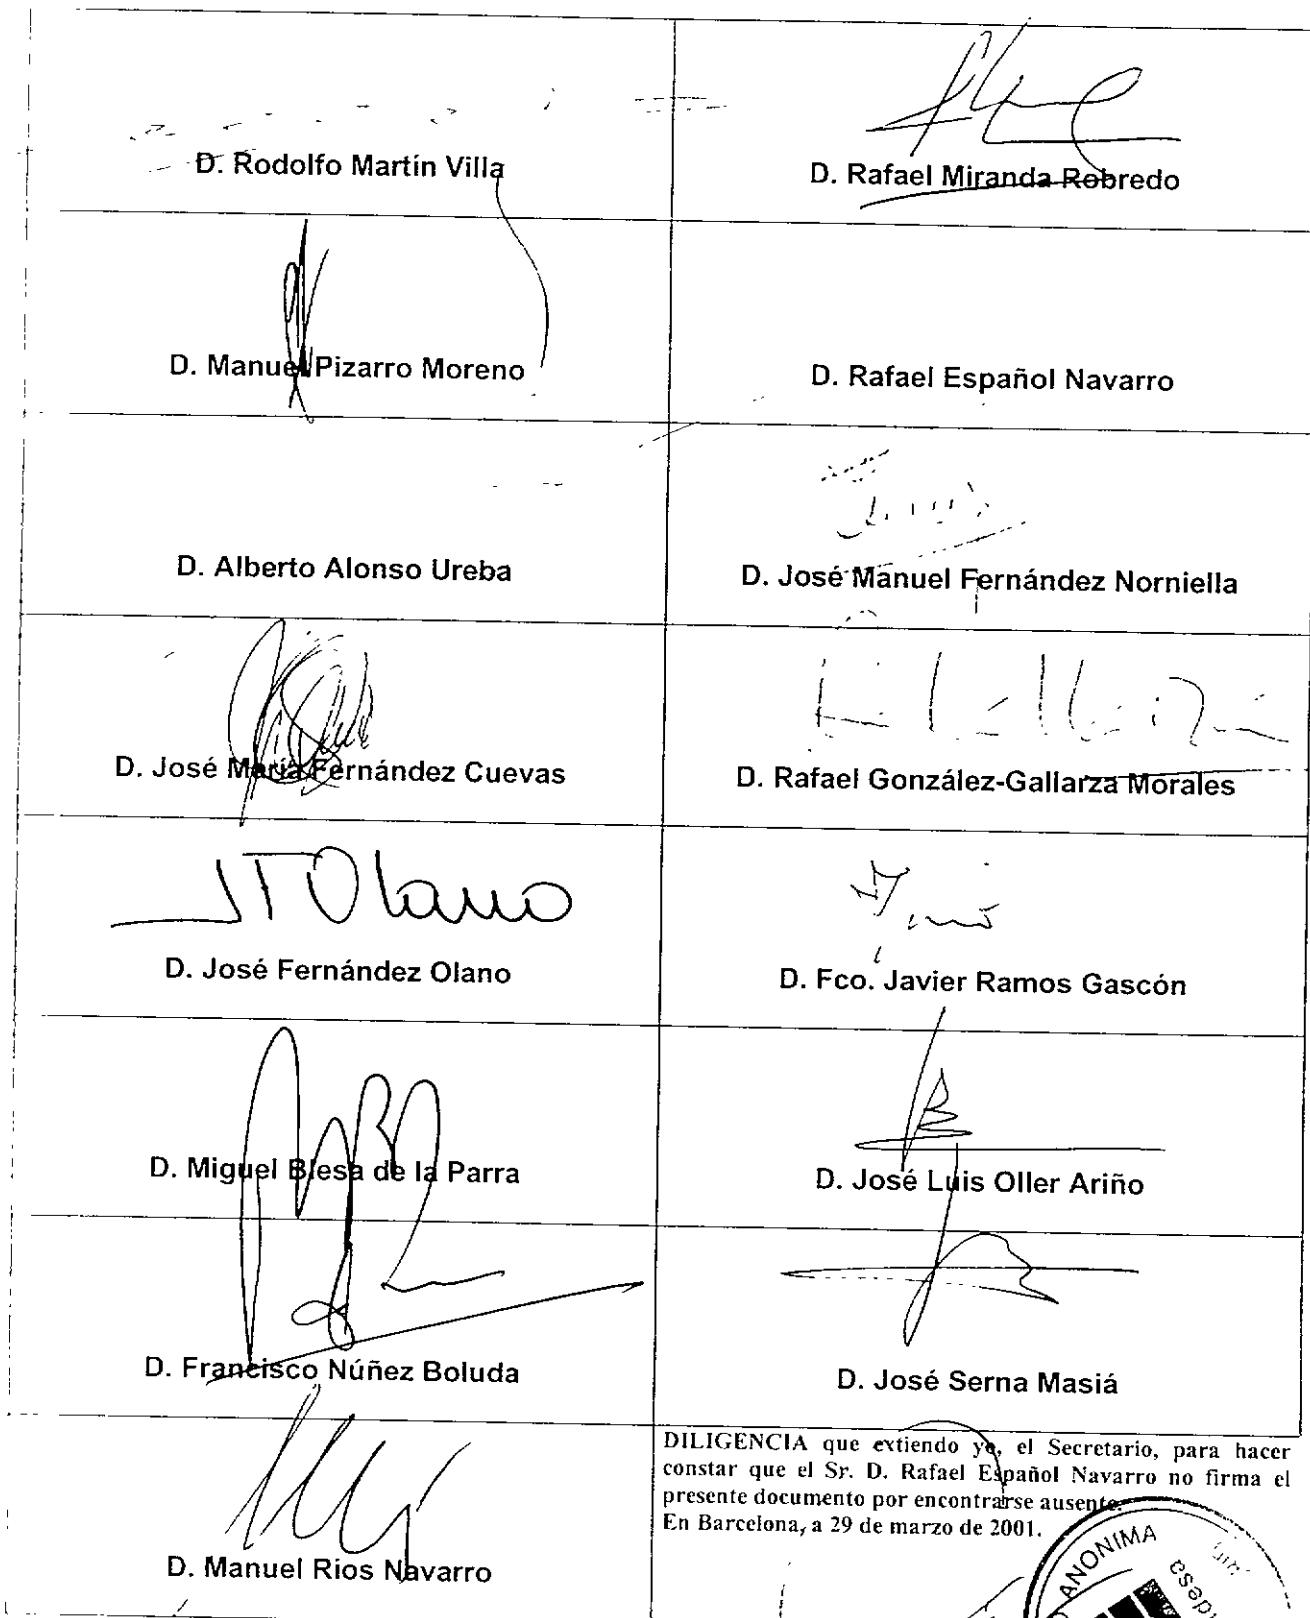 D. Rodolfo Martín Villa
D. Rafael Miranda Robredo
D. Manuel Pizarro Moreno
D. Rafael Español Navarro
D. Alberto Alonso Ureba
D. José Manuel Fernández Norniella
D. José María Fernández Cuevas
D. Rafael González-Gallarza Morales
D. José Fernández Olano
D. Fco. Javier Ramos Gascón
D. Miguel Blesa de la Parra
D. José Luis Oller Ariño
D. Francisco Núñez Boluda
D. José Serna Masiá
D. Manuel Ríos Navarro
DILIGENCIA que extiendo yo, el Secretario, para hacer
constar que el Sr. D. Rafael Español Navarro no firma el
presente documento por encontrarse ausente.
En Barcelona, a 29 de marzo de 2001.
ANONIMA